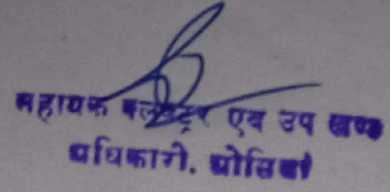 सहायक कलक्टर एव उप खण्ड
अधिकारी. ओसियाँ